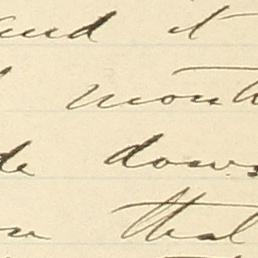 and it
month
de down
that